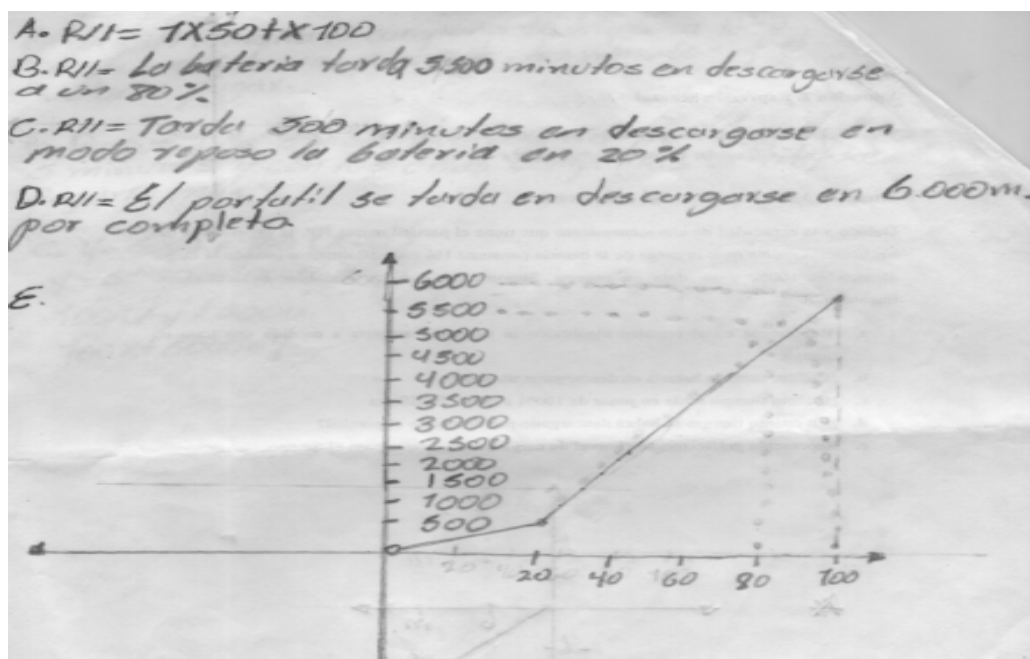 A. R//= 1X50+X100
B. R//= La bateria tarda 5500 minutos en descargarse
a un 80%
C. R//= Tarda 500 minutos en descargarse en
modo reposo la bateria en 20%
D. R//= El portatil se tarda en descargarse en 6.000m.
por completa
E.
6000
5500
5000
4500
4000
3500
3000
2500
2000
1500
1000
500
20 40 60 80 100